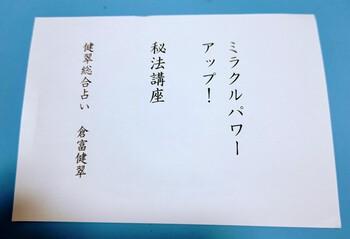 ミラクルパワー
アップ！
秘法講座
健翠総合占い　倉富健翠